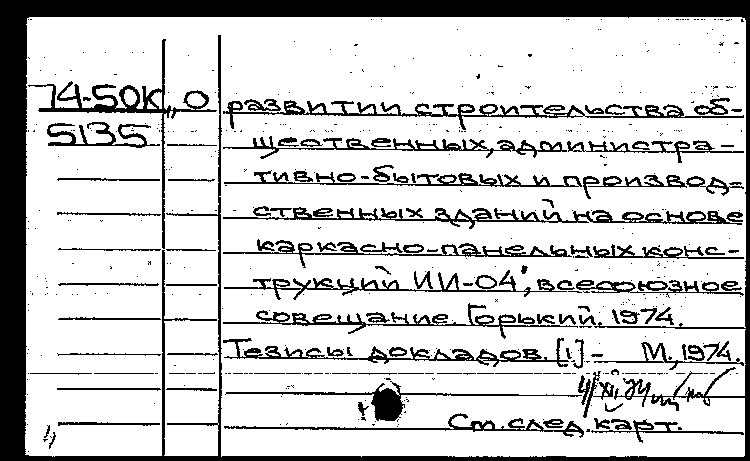 74-50К „О развитии строительства об-
5135 щественных, администра-
тивно-бытовых и производ-
ственных зданий на основе
каркасно-панельных конс-
трукций ИИ-04", всесоюзное
совещание. Горький. 1974.
Тезисы докладов. [1] - М., 1974.
См. след. карт.